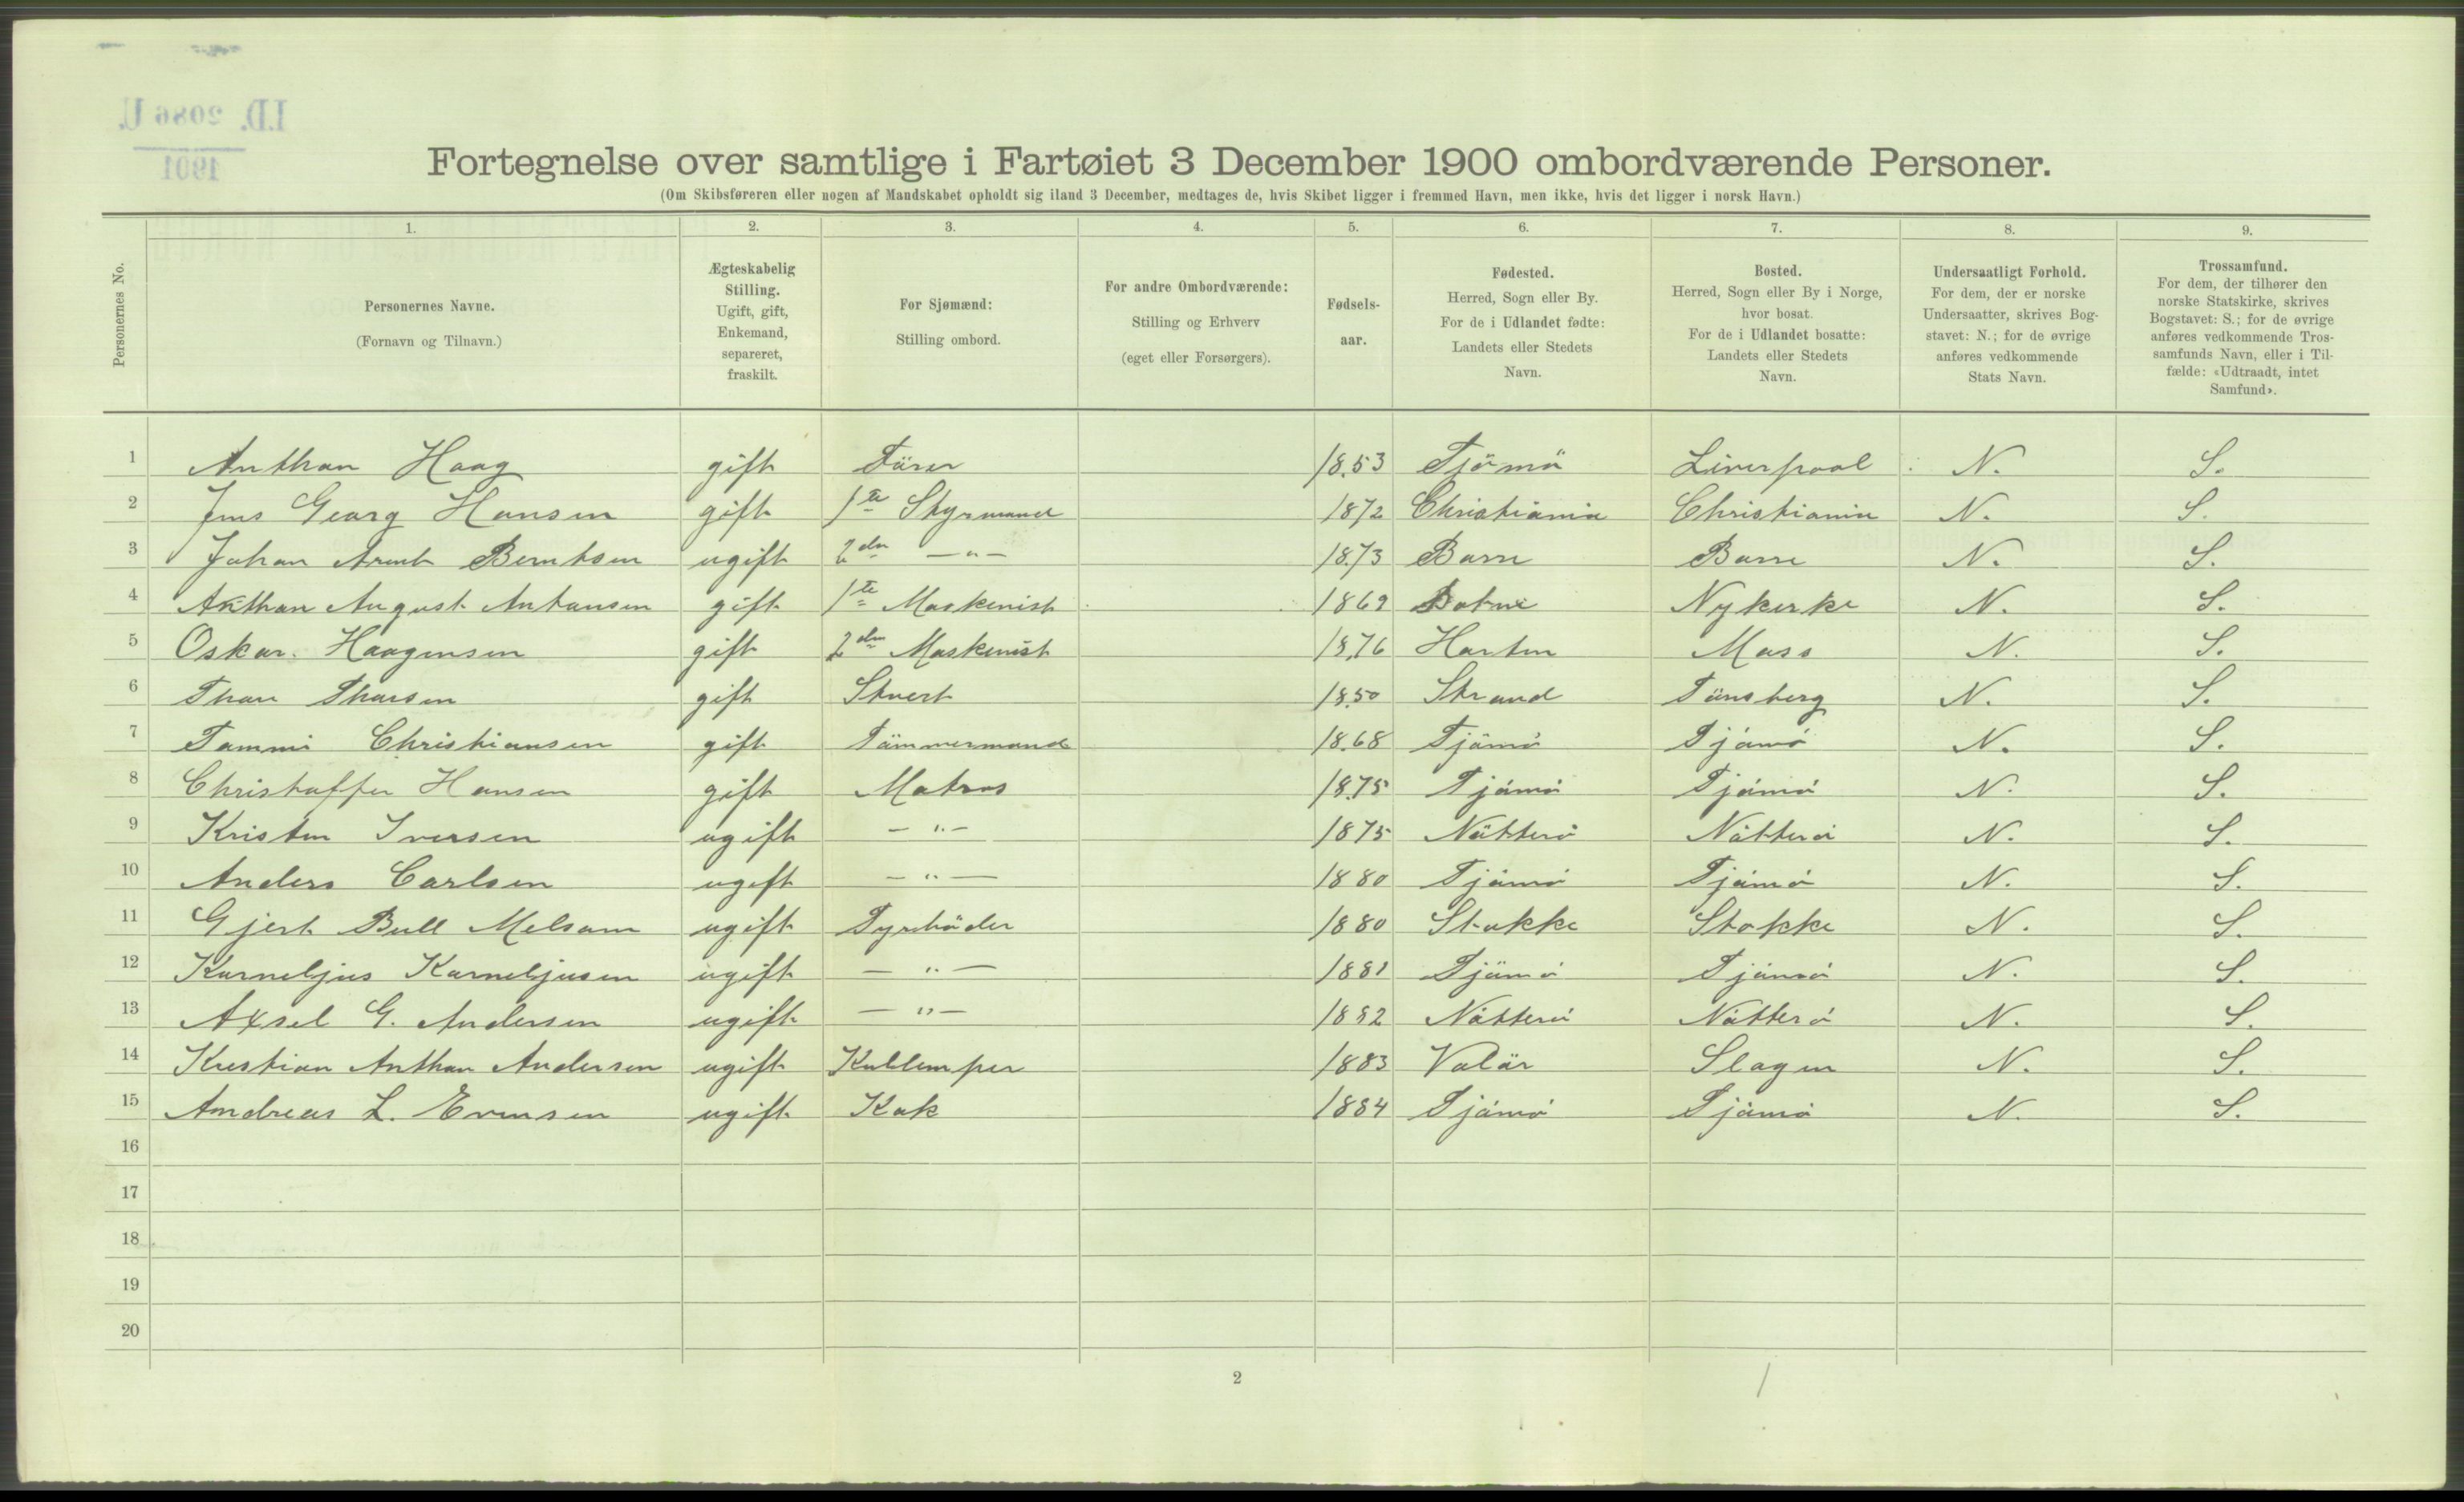 I.D. 2086 U.
1901
Fortegnelse over samtlige i Fartøiet 3 December 1900 ombordværende Personer.
(Om Skibsføreren eller nogen af Mandskabet opholdt sig iland 3 December, medtages de, hvis Skibet ligger i fremmed Havn, men ikke, hvis det ligger i norsk Havn.)
Personernes No.
1. 2. 3. 4. 5. 6. 7. 8. 9.
Personernes Navne.
(Fornavn og Tilnavn.)
Ægteskabelig
Stilling.
Ugift, gift,
Enkemand,
separeret,
fraskilt.
For Sjømænd:
Stilling ombord.
For andre Ombordværende:
Stilling og Erhverv
(eget eller Forsørgers).
Fødsels-
aar.
Fødested.
Herred, Sogn eller By.
For de i Udlandet fødte:
Landets eller Stedets
Navn.
Bosted.
Herred, Sogn eller By i Norge,
hvor bosat.
For de i Udlandet bosatte:
Landets eller Stedets
Navn.
Undersaatligt Forhold.
For dem, der er norske
Undersaatter, skrives Bog-
stavet: N.; for de øvrige
anføres vedkommende
Stats Navn.
Trossamfund.
For dem, der tilhører den
norske Statskirke, skrives
Bogstavet: S.; for de øvrige
anføres vedkommende Tros-
samfunds Navn, eller i Til-
fælde: «Udtraadt, intet
Samfund».
1 Anthon Haag gift Förer 1853 Tjömö Liverpool N. S.
2 Jens Georg Hansen gift 1te Styrmand 1872 Christiania Christiania N. S.
3 Johan Arent Berntsen ugift 2den —"— 1873 Borre Borre N. S.
4 Anthon August Antonsen gift 1te Maskenist 1869 Botne Nykerke N. S.
5 Oskar Haagensen gift 2den Maskenist 1876 Horten Moss N. S.
6 Thor Thorsen gift Stuert 1850 Strand Tönsberg N. S.
7 Tommi Christiansen gift Tömmermand 1868 Tjömö Tjömö N. S.
8 Christoffer Hansen gift Matros 1875 Tjömö Tjömö N. S.
9 Kristen Iversen ugift —"— 1875 Nötterö Nötterö N. S.
10 Anders Carlsen ugift —"— 1880 Tjömö Tjömö N. S.
11 Gjert Bull Melsom ugift Fyrböder 1880 Stokke Stokke N. S.
12 Korneljus Korneljusen ugift —"— 1881 Tjömö Tjömö N. S.
13 Axsel G. Andersen ugift —"— 1882 Nötterö Nötterö N. S.
14 Kristian Anthon Andersen ugift Kullemper 1883 Valör Slagen N. S.
15 Andreas L. Evensen ugift Kok 1884 Tjömö Tjömö N. S.
16
17
18
19
20
2